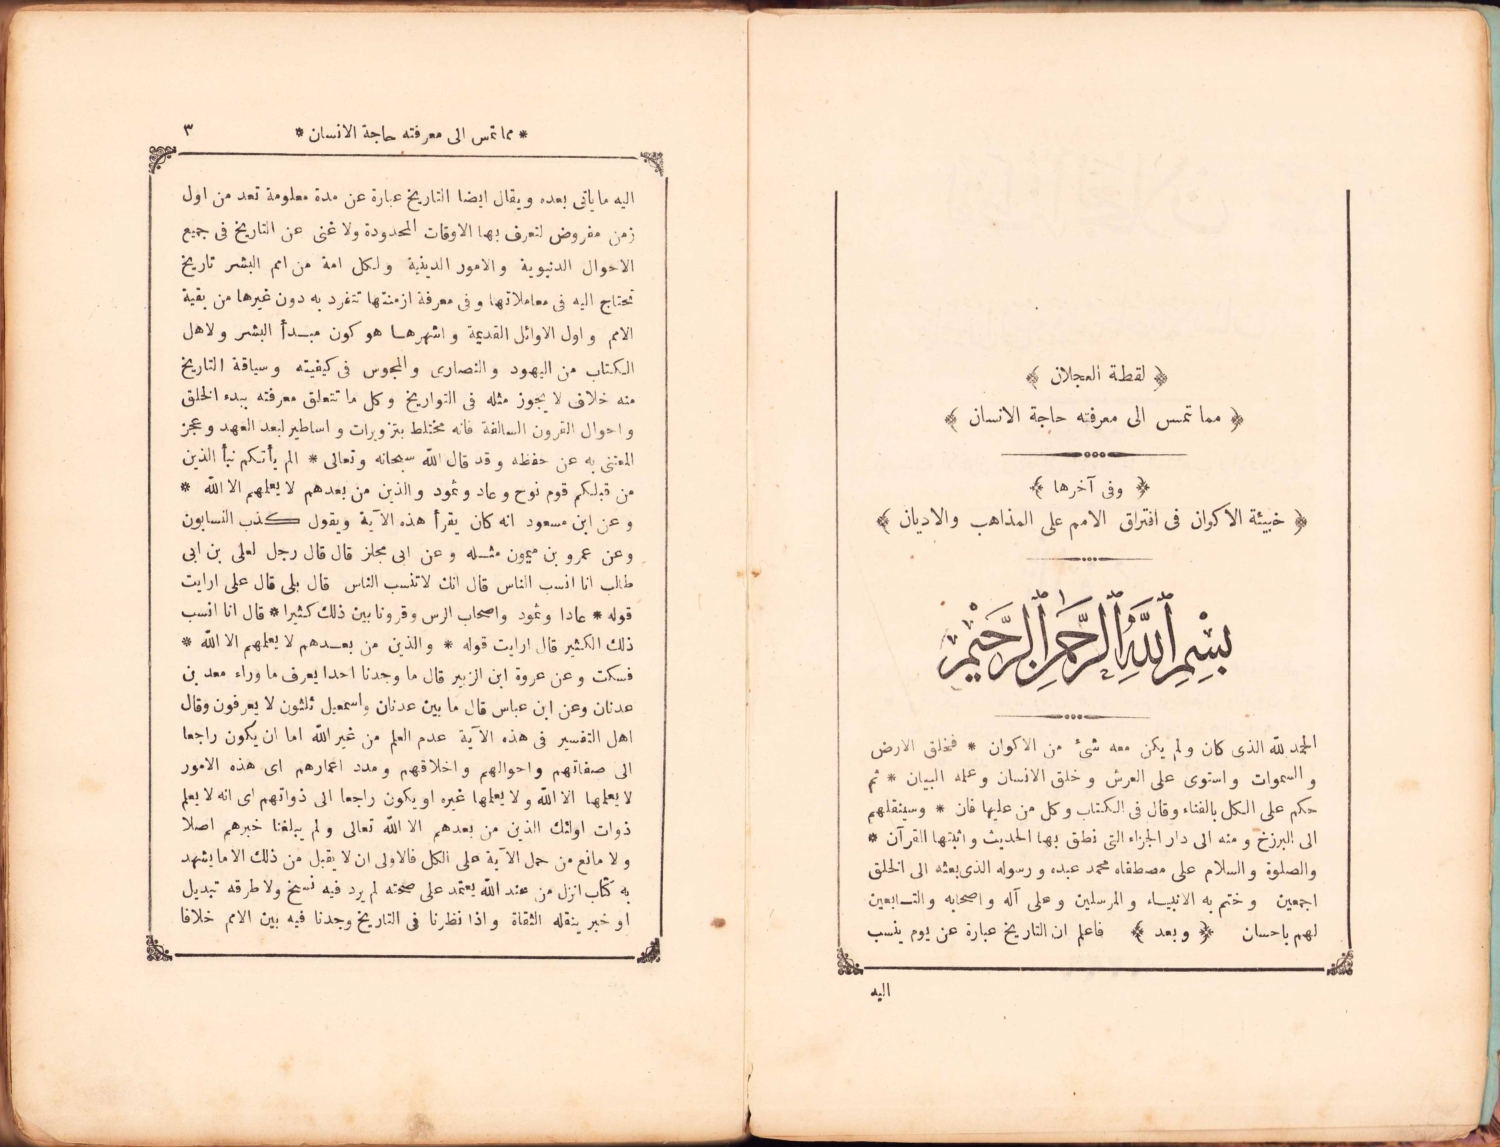 ﴿ لقطة العجلان ﴾
﴿ مما تمس الى معرفته حاجة الانسان ﴾
﴿ وفى آخرها ﴾
﴿ خبيئة الاكوان فى افتراق الامم على المذاهب والاديان ﴾
بِسْمِ اللَّهِ الرَّحْمَٰنِ الرَّحِيْمِ
الحمد لله الذى كان ولم يكن معه شئ من الاكوان * فخلق الارض
والسموات واستوى على العرش وخلق الانسان وعلمه البيان * ثم
حكم على الكل بالفناء وقال فى الكتاب وكل من عليها فان * وسينقلهم
الى البرزخ ومنه الى دار الجزاء التى نطق بها الحديث واثبتها القرآن *
والصلوة والسلام على مصطفاه محمد عبده ورسوله الذى بعثه الى الخلق
اجمعين وختم به الانبياء والمرسلين وعلى آله واصحابه والتابعين
لهم باحسان ﴿ وبعد ﴾ فاعلم ان التاريخ عبارة عن يوم ينسب
اليه
* مما تمس الى معرفته حاجة الانسان * ٣
اليه ماياتى بعده ويقال ايضا التاريخ عبارة عن مدة معلومة تعد من اول
زمن مفروض لتعرف بها الاوقات المحدودة ولا غنى عن التاريخ فى جميع
الاحوال الدنيوية والامور الدينية ولكل امة من امم البشر تاريخ
تحتاج اليه فى معاملاتها وفى معرفة ازمنتها تنفرد به دون غيرها من بقية
الامم واول الاوائل القديمة واشهرها هو كون مبدأ البشر ولاهل
الكتاب من اليهود والنصارى والمجوس فى كيفيته وسياقة التاريخ
منه خلاف لا يجوز مثله فى التواريخ وكل ما تتعلق معرفته ببدء الخلق
واحوال القرون السالفة فانه مختلط بتزويرات واساطير لبعد العهد وعجز
المعتنى به عن حفظه وقد قال الله سبحانه وتعالى * الم يأتكم نبأ الذين
من قبلكم قوم نوح وعاد وثمود والذين من بعدهم لا يعلمهم الا الله *
وعن ابن مسعود انه كان يقرأ هذه الآية ويقول كذب النسابون
وعن عمرو بن ميمون مثله وعن ابى مجلز قال قال رجل لعلى بن ابى
طالب انا انسب الناس قال انك لاتنسب الناس قال بلى قال على ارايت
قوله * عادا وثمود واصحاب الرس وقرونا بين ذلك كثيرا * قال انا انسب
ذلك الكثير قال ارايت قوله * والذين من بعدهم لا يعلمهم الا الله *
فسكت وعن عروة ابن الزبير قال ما وجدنا احدا يعرف ما وراء معد بن
عدنان وعن ابن عباس قال ما بين عدنان واسمعيل ثلثون لا يعرفون وقال
اهل التفسير فى هذه الآية عدم العلم من غير الله اما ان يكون راجعا
الى صفاتهم واحوالهم واخلاقهم ومدد اعمارهم اى هذه الامور
لا يعلمها الا الله ولا يعلمها غيره او يكون راجعا الى ذواتهم اى انه لا يعلم
ذوات اولئك الذين من بعدهم الا الله تعالى ولم يبلغنا خبرهم اصلا
ولا مانع من حمل الآية على الكل فالاولى ان لا يقبل من ذلك الا ما يشهد
به كتاب انزل من عند الله يعتمد على صحته لم يرد فيه نسخ ولا طرقه تبديل
او خبر ينقله الثقاة واذا نظرنا فى التاريخ وجدنا فيه بين الامم خلافا